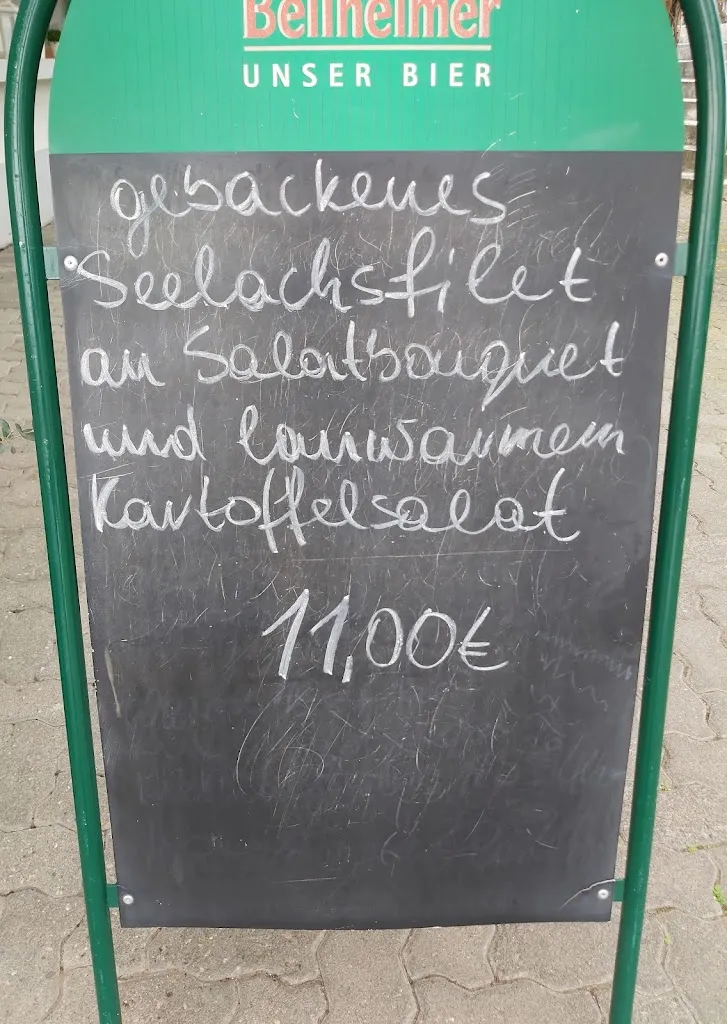 Bellheimer
UNSER BIER
gebackenes
Seelachsfilet
an Salatbouquet
und lauwarmem
Kartoffelsalat
11,00€